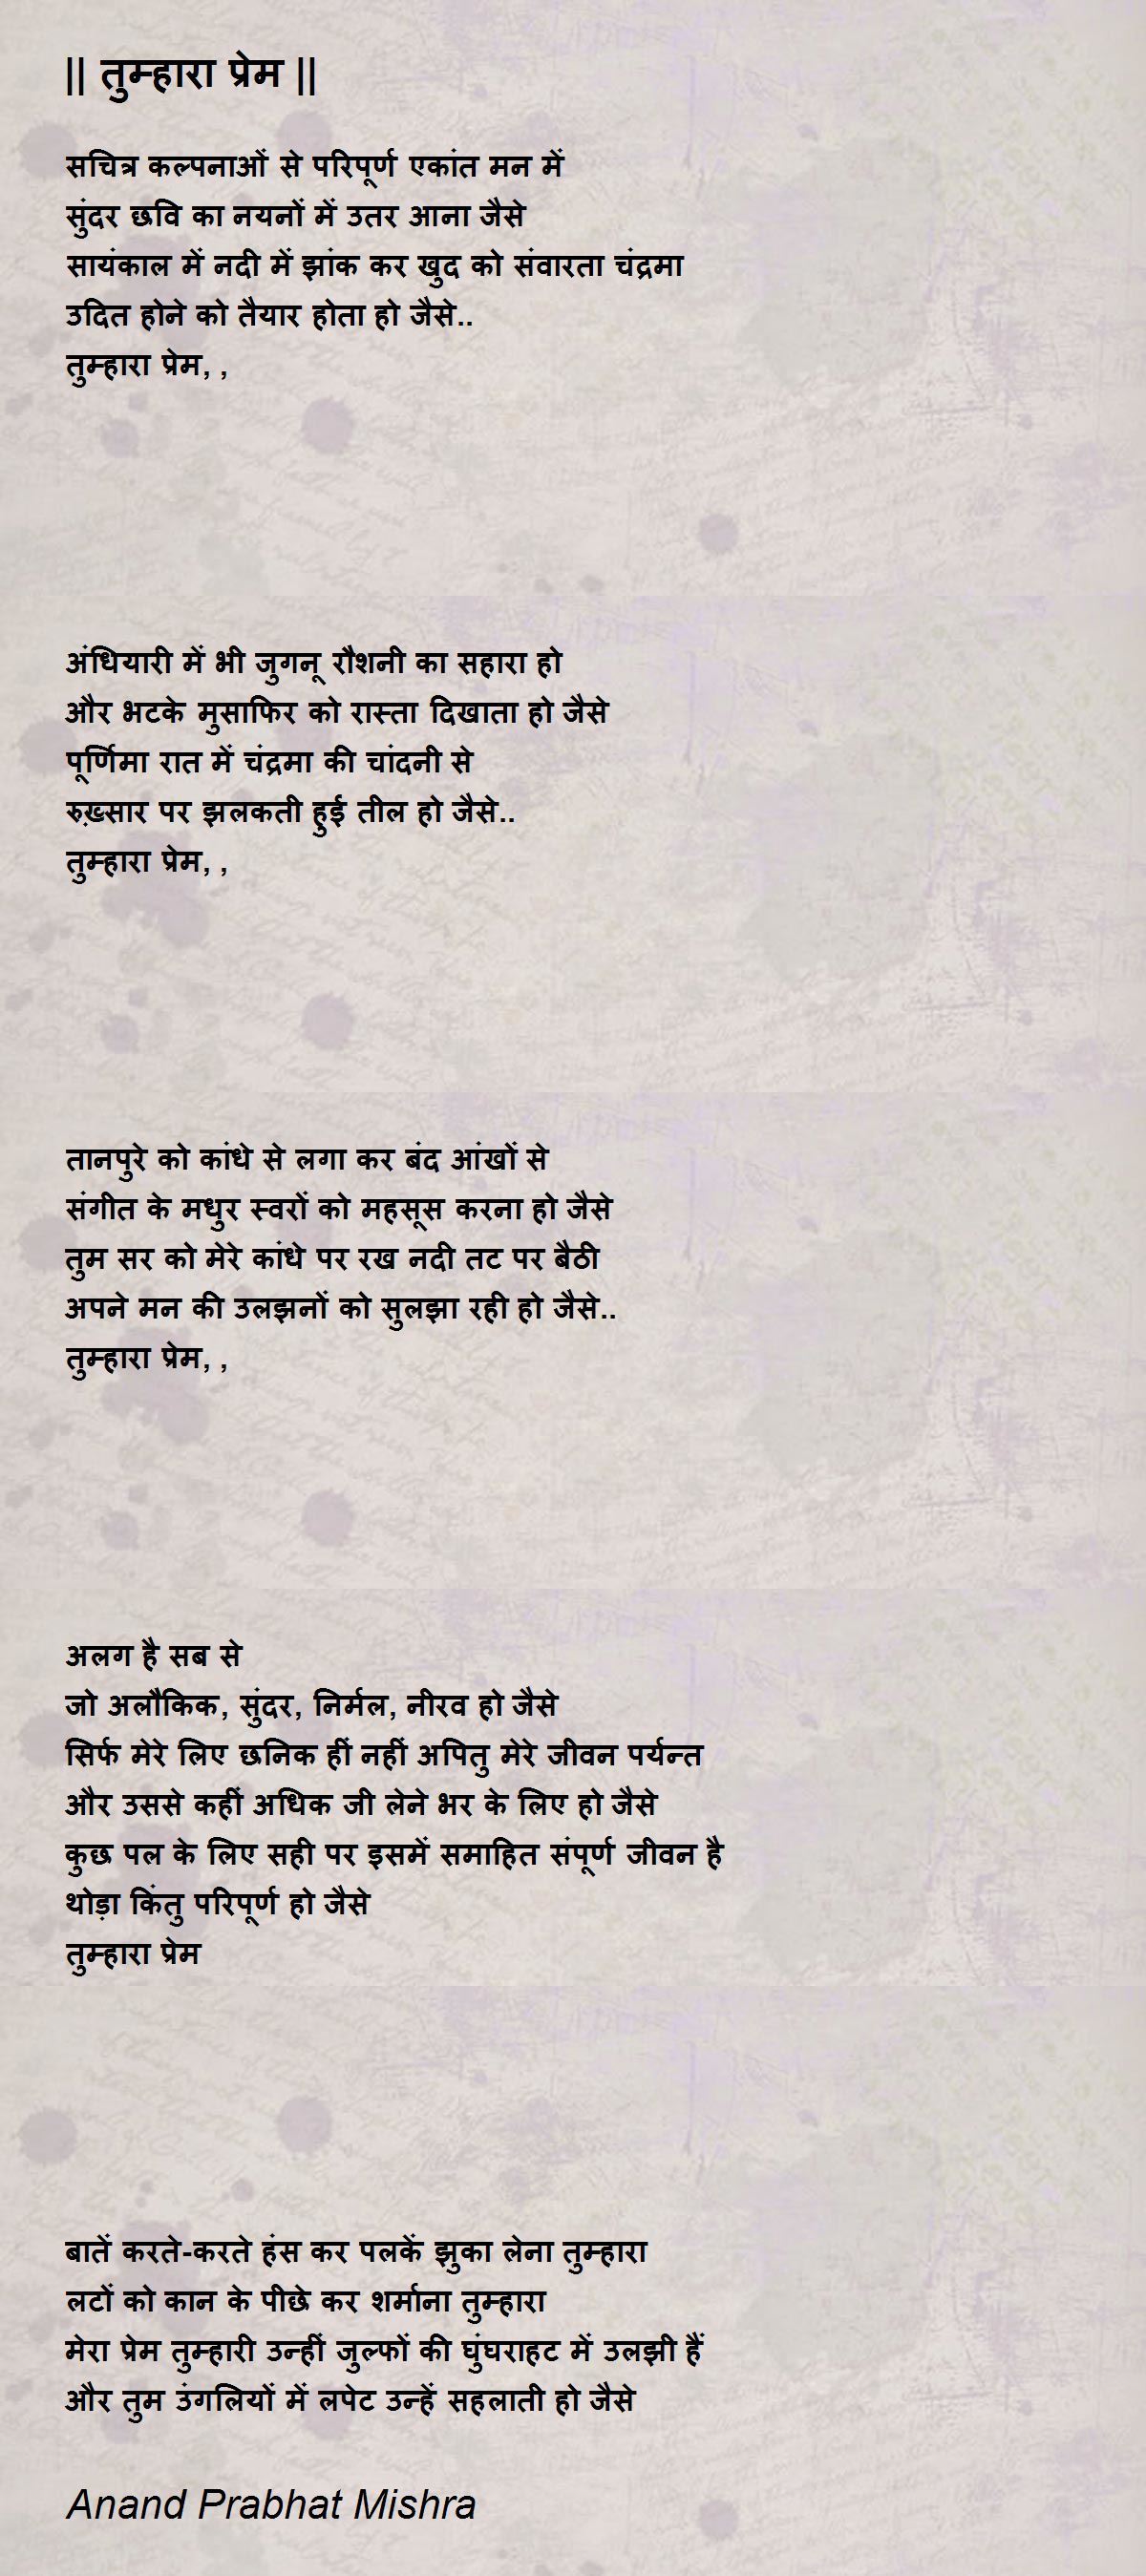 || तुम्हारा प्रेम ||
सचित्र कल्पनाओं से परिपूर्ण एकांत मन में
सुंदर छवि का नयनों में उतर आना जैसे
सायंकाल में नदी में झांक कर खुद को संवारता चंद्रमा
उदित होने को तैयार होता हो जैसे..
तुम्हारा प्रेम, ,
अंधियारी में भी जुगनू रौशनी का सहारा हो
और भटके मुसाफिर को रास्ता दिखाता हो जैसे
पूर्णिमा रात में चंद्रमा की चांदनी से
रुख़्सार पर झलकती हुई तील हो जैसे..
तुम्हारा प्रेम, ,
तानपुरे को कांधे से लगा कर बंद आंखों से
संगीत के मधुर स्वरों को महसूस करना हो जैसे
तुम सर को मेरे कांधे पर रख नदी तट पर बैठी
अपने मन की उलझनों को सुलझा रही हो जैसे..
तुम्हारा प्रेम, ,
अलग है सब से
जो अलौकिक, सुंदर, निर्मल, नीरव हो जैसे
सिर्फ मेरे लिए छनिक हीं नहीं अपितु मेरे जीवन पर्यन्त
और उससे कहीं अधिक जी लेने भर के लिए हो जैसे
कुछ पल के लिए सही पर इसमें समाहित संपूर्ण जीवन है
थोड़ा किंतु परिपूर्ण हो जैसे
तुम्हारा प्रेम
बातें करते-करते हंस कर पलकें झुका लेना तुम्हारा
लटों को कान के पीछे कर शर्माना तुम्हारा
मेरा प्रेम तुम्हारी उन्हीं जुल्फों की घुंघराहट में उलझी हैं
और तुम उंगलियों में लपेट उन्हें सहलाती हो जैसे
Anand Prabhat Mishra